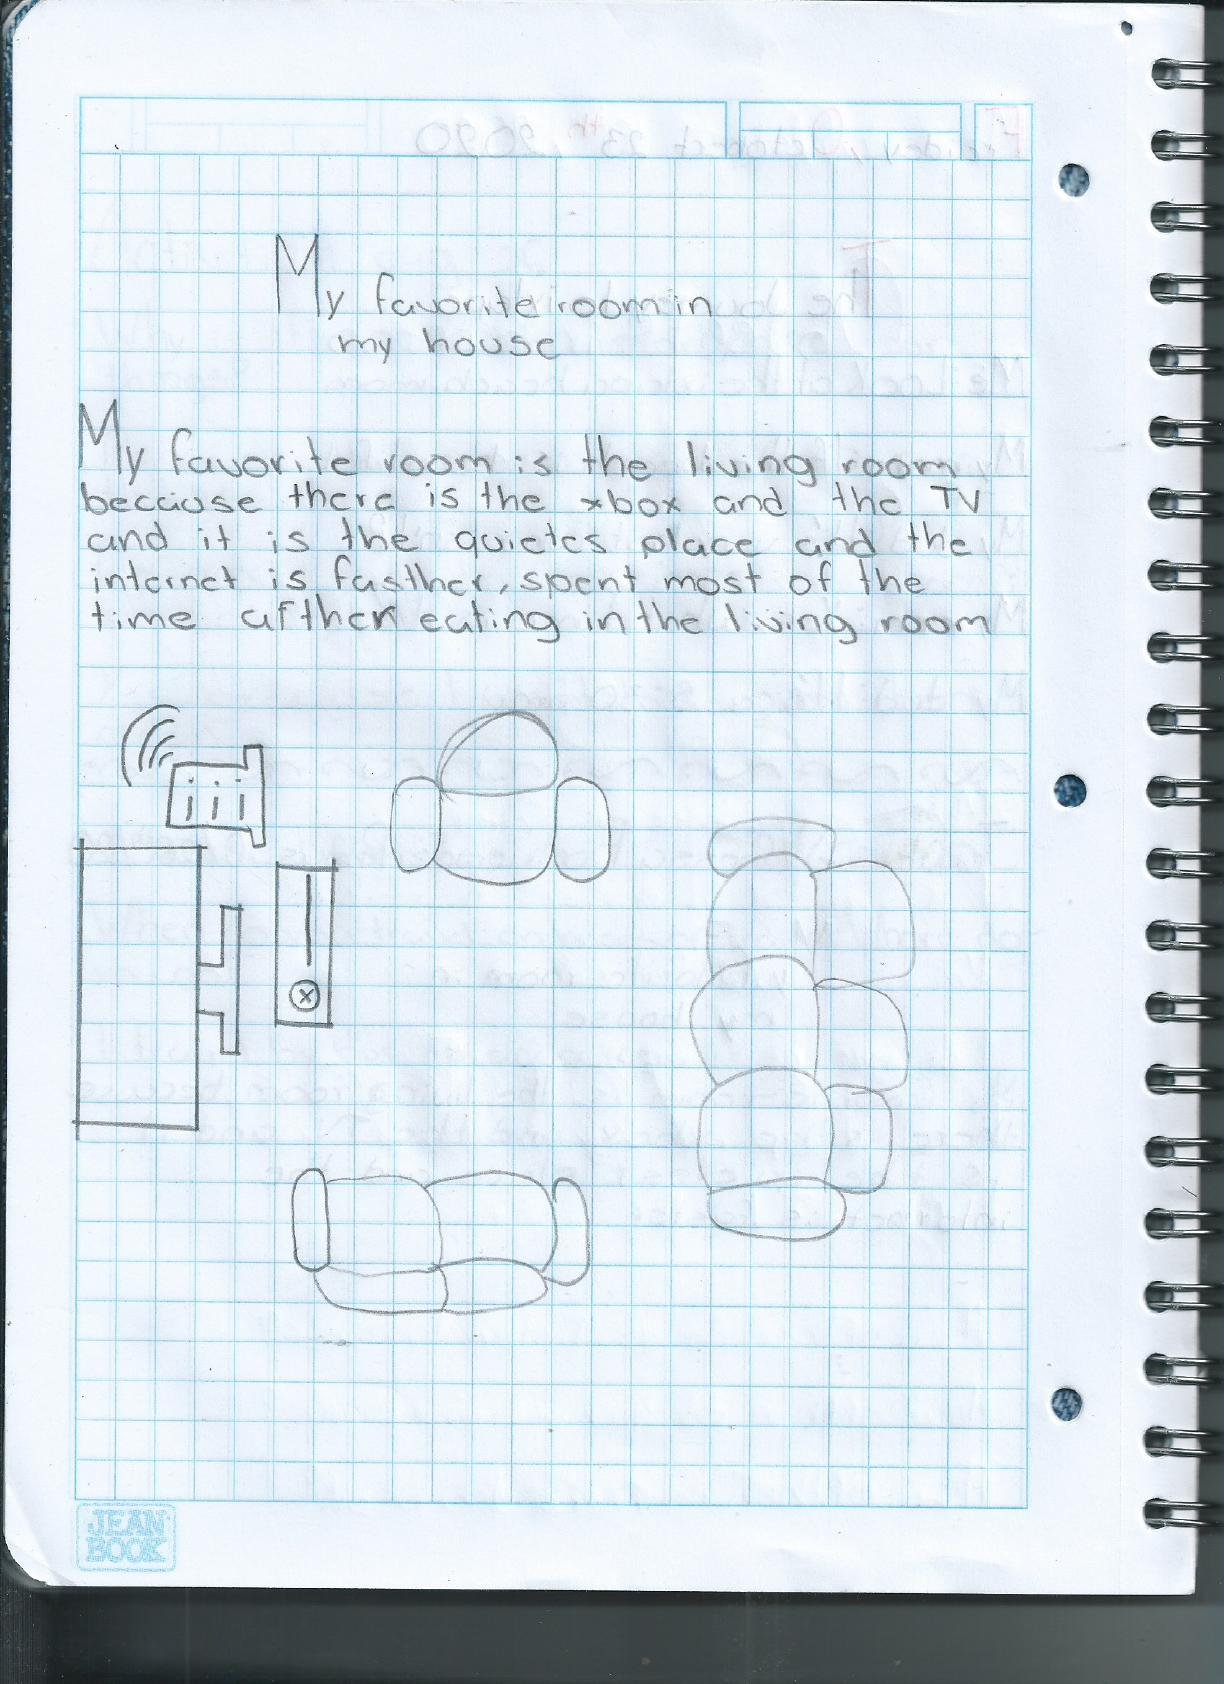 My favorite room in
my house
My favorite room is the living room
because there is the xbox and the TV
and it is the quietes place and the
internet is fasther, spent most of the
time afther eating in the living room
JEAN
BOOK